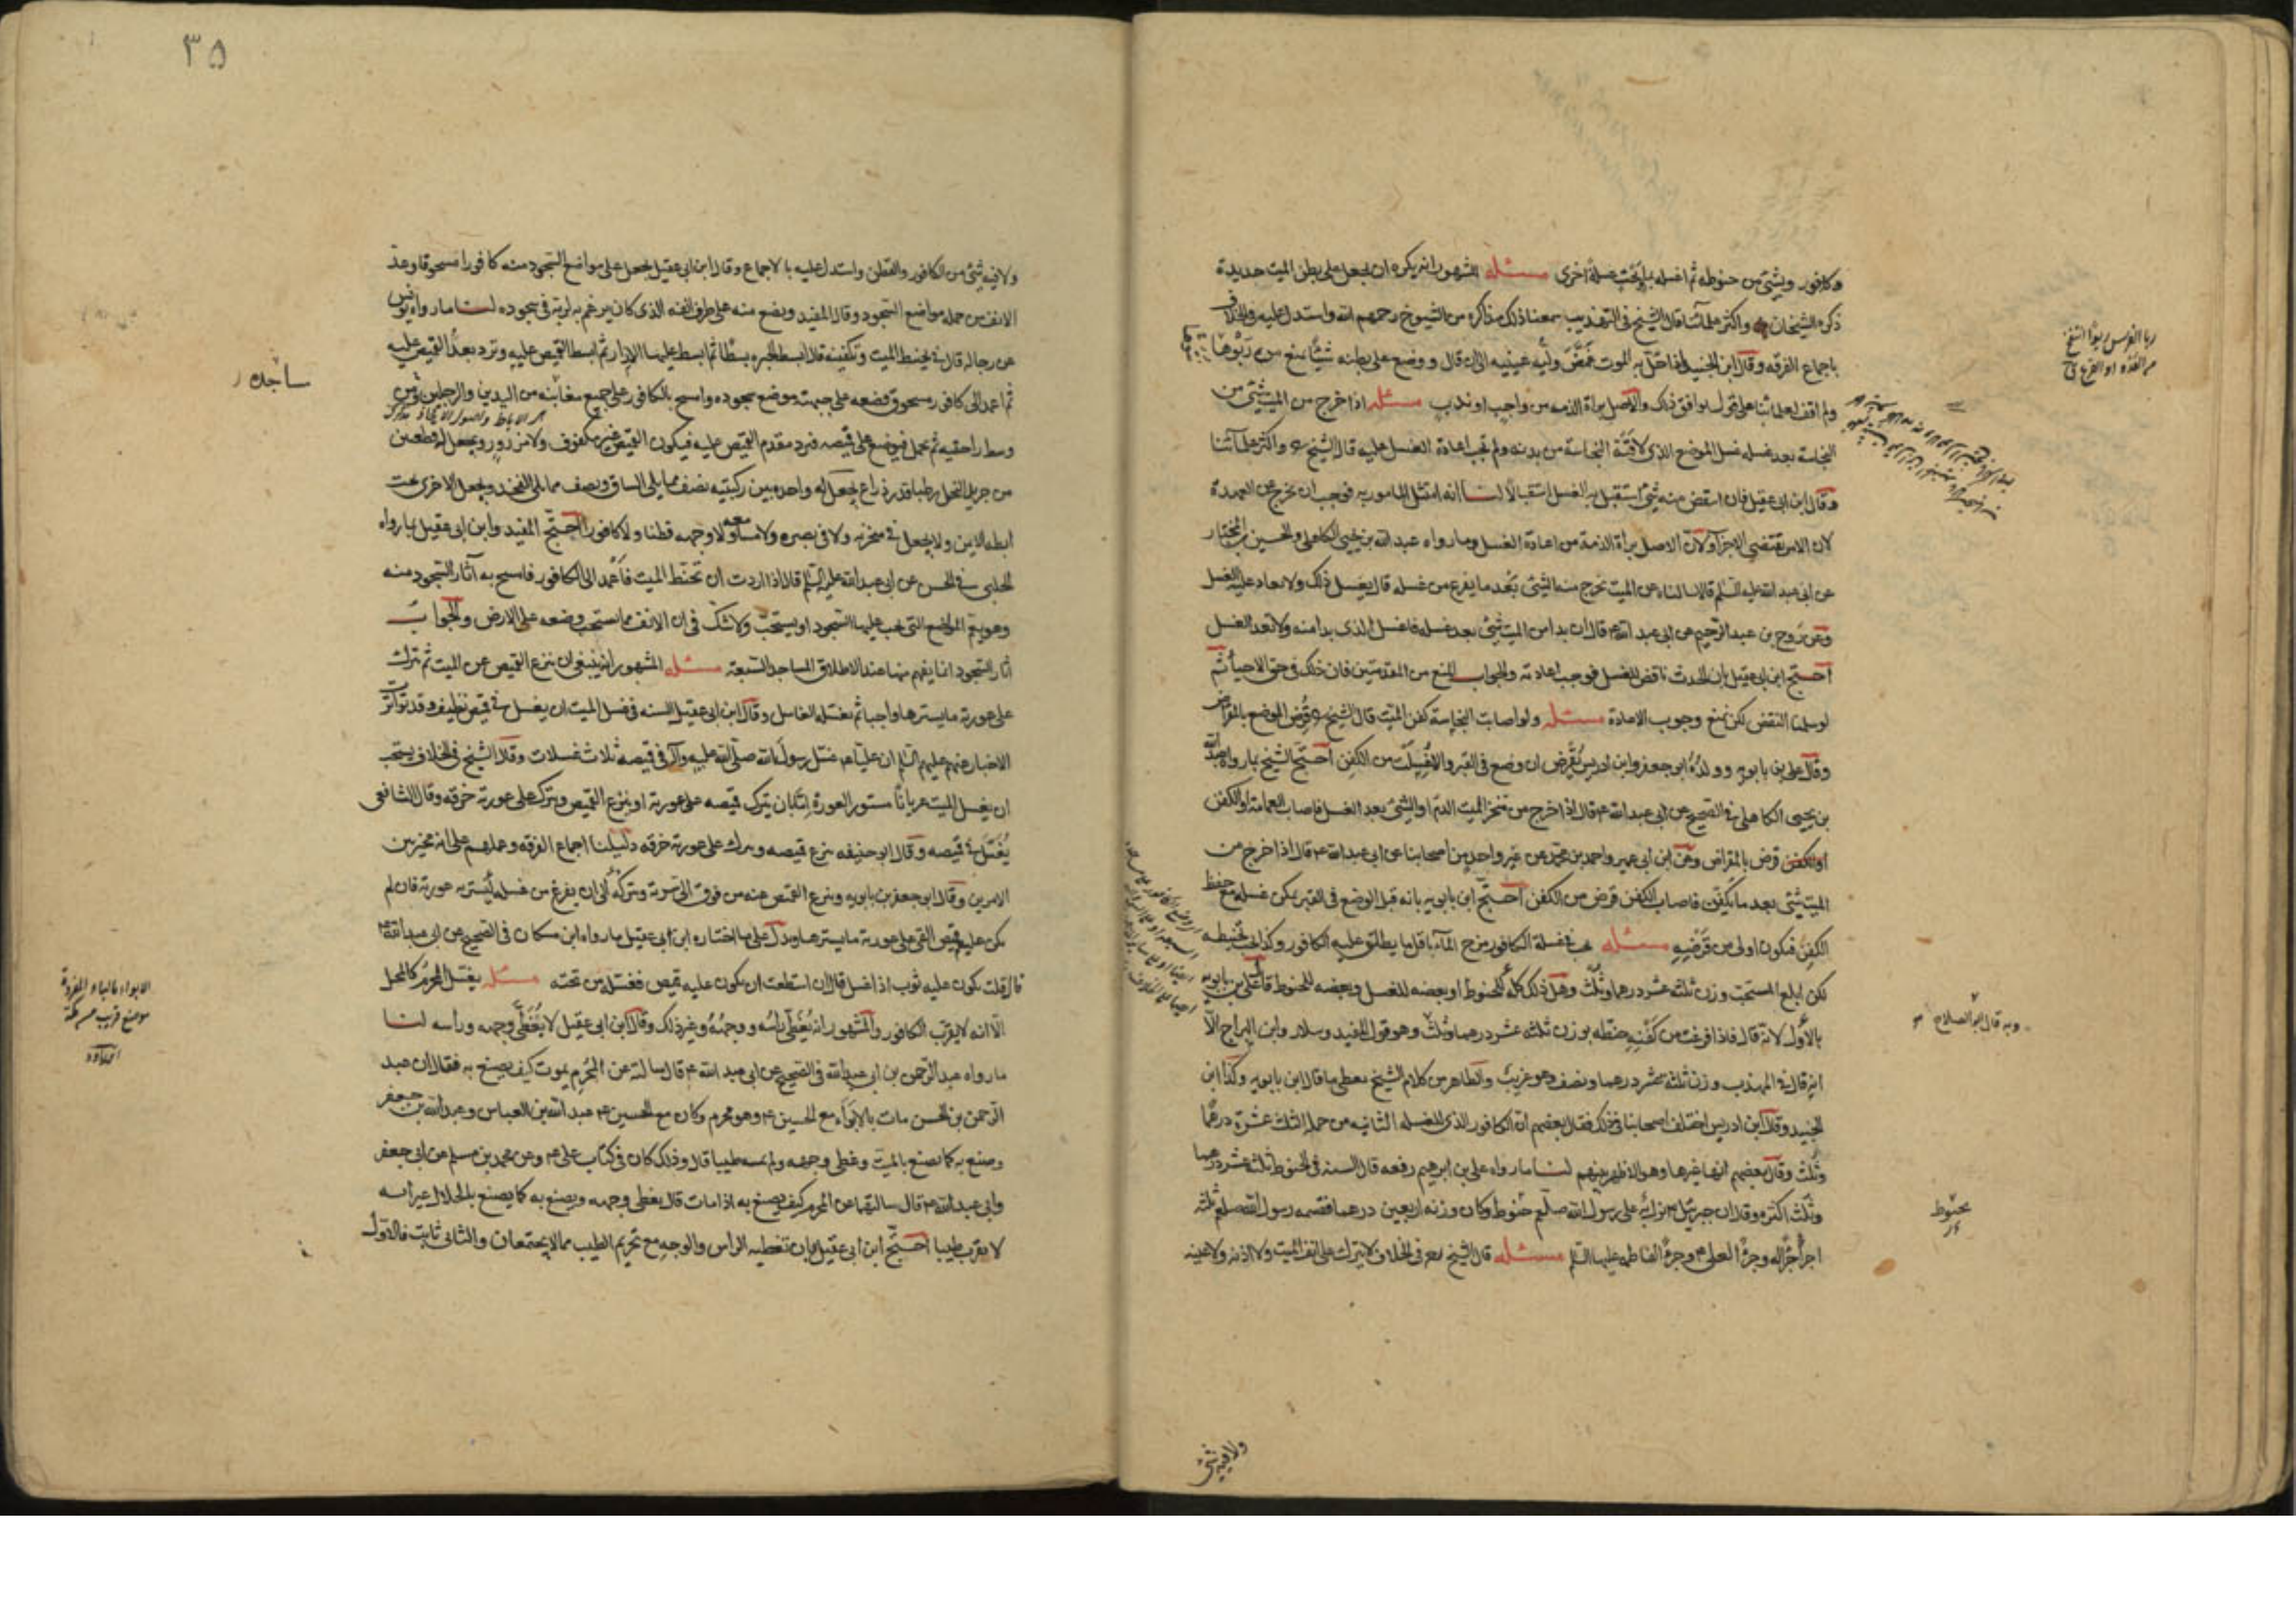 وكافور وبشئ من حنوطه ثم اغسله بماء بحت غسلة اخرى مسئله المشهور انه يكره ان يجعل على بطن الميت حديدة
ذكره الشيخان واكثر علمائنا قال الشيخ في التهذيب سمعنا ذلك مذاكرة من الشيوخ رحمهم الله واستدل عليه في الخلاف
باجماع الفرقه وقال ابن الجنيد اذا حل به الموت غمض وليه عينيه الى ان قال ووضع على بطنه شيئا يمنع من ربوها
ولم اقف لعلمائنا على قول يوافق ذلك والاصل براة الذمه من واجب او ندب مسئله اذا خرج من الميت شئ من
النجاسة بعد غسله غسل الموضع الذي لاقته النجاسة من بدنه ولم تجب اعادة الغسل عليه قال الشيخ واكثر علمآئنا
وقال ابن ابي عقيل فان انتقض منه شئ استقبل به الغسل استقبالا لنا انه امتثل المامور به فوجب ان يخرج عن العهدة
لان الامر يقتضي الاجزآ ولان الاصل براة الذمة من اعادة الغسل وما رواه عبد الله بن يحيى الكاهلي والحسين بن المختار
عن ابي عبد الله عليه السلم قالا سالناه عن الميت يخرج منه الشئ بعد ما يفرغ من غسله قال يغسل ذلك ولا يعاد عليه الغسل
وعن روح بن عبد الرحيم عن ابي عبد الله ع قال ان بدا من الميت شئ بعد غسله فاغسل الذي بدا منه ولا تعد الغسل
احتج ابن ابي عقيل بان الحدث ناقض للغسل فوجب اعادته والجواب المنع من المقدمتين فان ذلك في حق الاحيآء ثم
لو سلمنا النقض لكن نمنع وجوب الاعادة مسئله ولو اصابت النجاسة كفن الميت قال الشيخ قرض الموضع بالمقراض
وقال علي بن بابويه وولده ابو جعفر وابن ادريس يقرض ان وضع في القبر والا غسلت من الكفن احتج الشيخ بما رواه عبد الله
بن يحيى الكاهلي في الصحيح عن ابي عبد الله ع قال اذا خرج من منخر الميت الدم او الشئ بعد الغسل فاصاب العمامة او الكفن
او الكفن قرض بالمقراض وعن ابن ابي عمير واحمد بن محمد عن غير واحد من اصحابنا عن ابي عبد الله ع قال اذا خرج من
الميت شئ بعد ما يكفن فاصاب الكفن قرض من الكفن احتج ابن بابويه بانه قبل الوضع في القبر يمكن غسله مع حفظ
الكفن فيكون اولى من قرضه مسئله يجب في غسلة الكافور مزج المآء باقل ما يطلق عليه الكافور وكذا يجب تحنيطه
لكن ابلغ المستحب وزن ثلثه عشر درهما وثلث وهل ذلك كله للحنوط او بعضه للغسل وبعضه للحنوط قال علي بن بابويه
بالاول لانه قال فاذا فرغت من كفنه حنطه بوزن ثلثه عشر درهما وثلث وهو قول المفيد وسلار وابن البراج الا
انه قال في المهذب وزن ثلثه عشر درهما ونصف وهو غريب والظاهر من كلام الشيخ يعطي ما قال ابن بابويه وكذا ابن
الجنيد وقال ابن ادريس اختلف اصحابنا في ذلك فقال بعضهم ان الكافور الذي للغسله الثانيه من جمله الثلث عشرة درهما
وثلث وقال بعضهم انها غيرها وهو الاظهر بينهم لنا ما رواه علي بن ابرهيم رفعه قال السنه في الحنوط ثلثه عشر درهما
وثلث اكثره وقال ان جبرئيل ع نزل به على رسول الله صلعم حنوط وكان وزنه اربعين درهما فقسمه رسول الله صلعم ثلثه
اجزاء جزءا له وجزءا لعلي ع وجزءا لفاطمه عليها السلم مسئله قال الشيخ ره في الخلاف لا يترك على انف الميت ولا اذنه ولا عينه
ربا الفرس ربوا انتفخ
من العدو او الفزع
وبه قال ابو الصلاح
بحنوط
ولا فيه شئ
٣٥
ولا فيه شئ من الكافور والقطن واستدل عليه بالاجماع وقال ابن ابي عقيل يجعل على مواضع السجود منه كافورا مسحوقا وعد
الانف من جمله مواضع السجود وقال المفيد ويضع منه على طرف انفه الذي كان يرغم به لربه في سجوده لنا ما رواه يونس
عن رجاله قال في تحنيط الميت وتكفينه قال ابسط الحبره بسطا ثم ابسط عليها الازار ثم ابسط القميص عليه وترد بعد القميص عليه
ثم اعمد الى كافور مسحوق فضعه على جبهته موضع سجوده وامسح بالكافور على جميع مغابنه من اليدين والرجلين ومن
وسط راحتيه ثم يحمل فيوضع على قميصه فيرد مقدم القميص عليه فيكون القميص غير مكفوف ولا مزرور ويجعل له قطعتين
من جريد النخل رطبا قدر ذراع يجعل له واحده بين ركبتيه نصف مما يلي الساق ونصف مما يلي الفخذ ويجعل الاخرى تحت
ابطه الايمن ولا يجعل في منخريه ولا في بصره ولا مسامعه ولا وجهه قطنا ولا كافورا احتج المفيد وابن ابي عقيل بما رواه
الحلبي في الحسن عن ابي عبد الله عليه السلم قال اذا اردت ان تحنط الميت فاعمد الى الكافور فامسح به آثار السجود منه
وهو يعم المواضع التي يجب عليها السجود او يستحب ولا شك في ان الانف مما يستحب وضعه على الارض والجواب
آثار السجود انما يفهم منها عند الاطلاق المساجد السبعه مسئله المشهور انه ينبغي ان ينزع القميص عن الميت ثم يترك
على عورته ما يسترها واجبا ثم يغسله الغاسل وقال ابن ابي عقيل السنه في غسل الميت ان يغسل في قميص نظيف وقد تواترت
الاخبار عنهم عليهم السلم ان عليا ع غسل رسول الله صلى الله عليه وآله في قميصه ثلاث غسلات وقال الشيخ في الخلاف يستحب
ان يغسل الميت عريانا مستور العورة اما بان يترك قميصه على عورته او ينزع القميص ويترك على عورته خرقه وقال الشافعي
يغسل في قميصه وقال ابو حنيفه ينزع قميصه ويترك على عورته خرقه دليلنا اجماع الفرقه وعملهم على انه مخير بين
الامرين وقال ابو جعفر بن بابويه وينزع القميص عنه من فوق الى سرته ويتركه الى ان يفرغ من غسله ليستر به عورته فان لم
يكن عليه قميص القي على عورته ما يسترها ويدل على ما اختاره ابن ابي عقيل ما رواه ابن مسكان في الصحيح عن ابي عبد الله ع
قال قلت يكون عليه ثوب اذا غسل قال ان استطعت ان يكون عليه قميص فغسله من تحته مسئله يغسل المحرم كالمحل
الا انه لا يقرب الكافور والمشهور انه يغطى راسه ووجهه وغير ذلك وقال ابن ابي عقيل لا يغطى وجهه ورأسه لنا
ما رواه عبد الرحمن بن ابي عبد الله في الصحيح عن ابي عبد الله ع قال سالته عن المحرم يموت كيف يصنع به فقال ان عبد
الرحمن بن الحسن مات بالابواء مع الحسين ع وهو محرم وكان مع الحسين ع عبد الله بن العباس وعبد الله بن جعفر
وصنع به كما يصنع بالميت وغطى وجهه ولم يمسه طيبا قال وذلك كان في كتاب علي ع وعن محمد بن مسلم عن ابي جعفر
وابي عبد الله ع قال سالتهما عن المحرم كيف يصنع به اذا مات قال يغطى وجهه ويصنع به كما يصنع بالحلال غير انه
لا يقرب طيبا احتج ابن ابي عقيل بان تغطيه الراس والوجه مع تحريم الطيب مما لا يجتمعان والثاني ثابت فالاول
ساجده
الابواء بالباء المفردة
موضع قريب من مكة